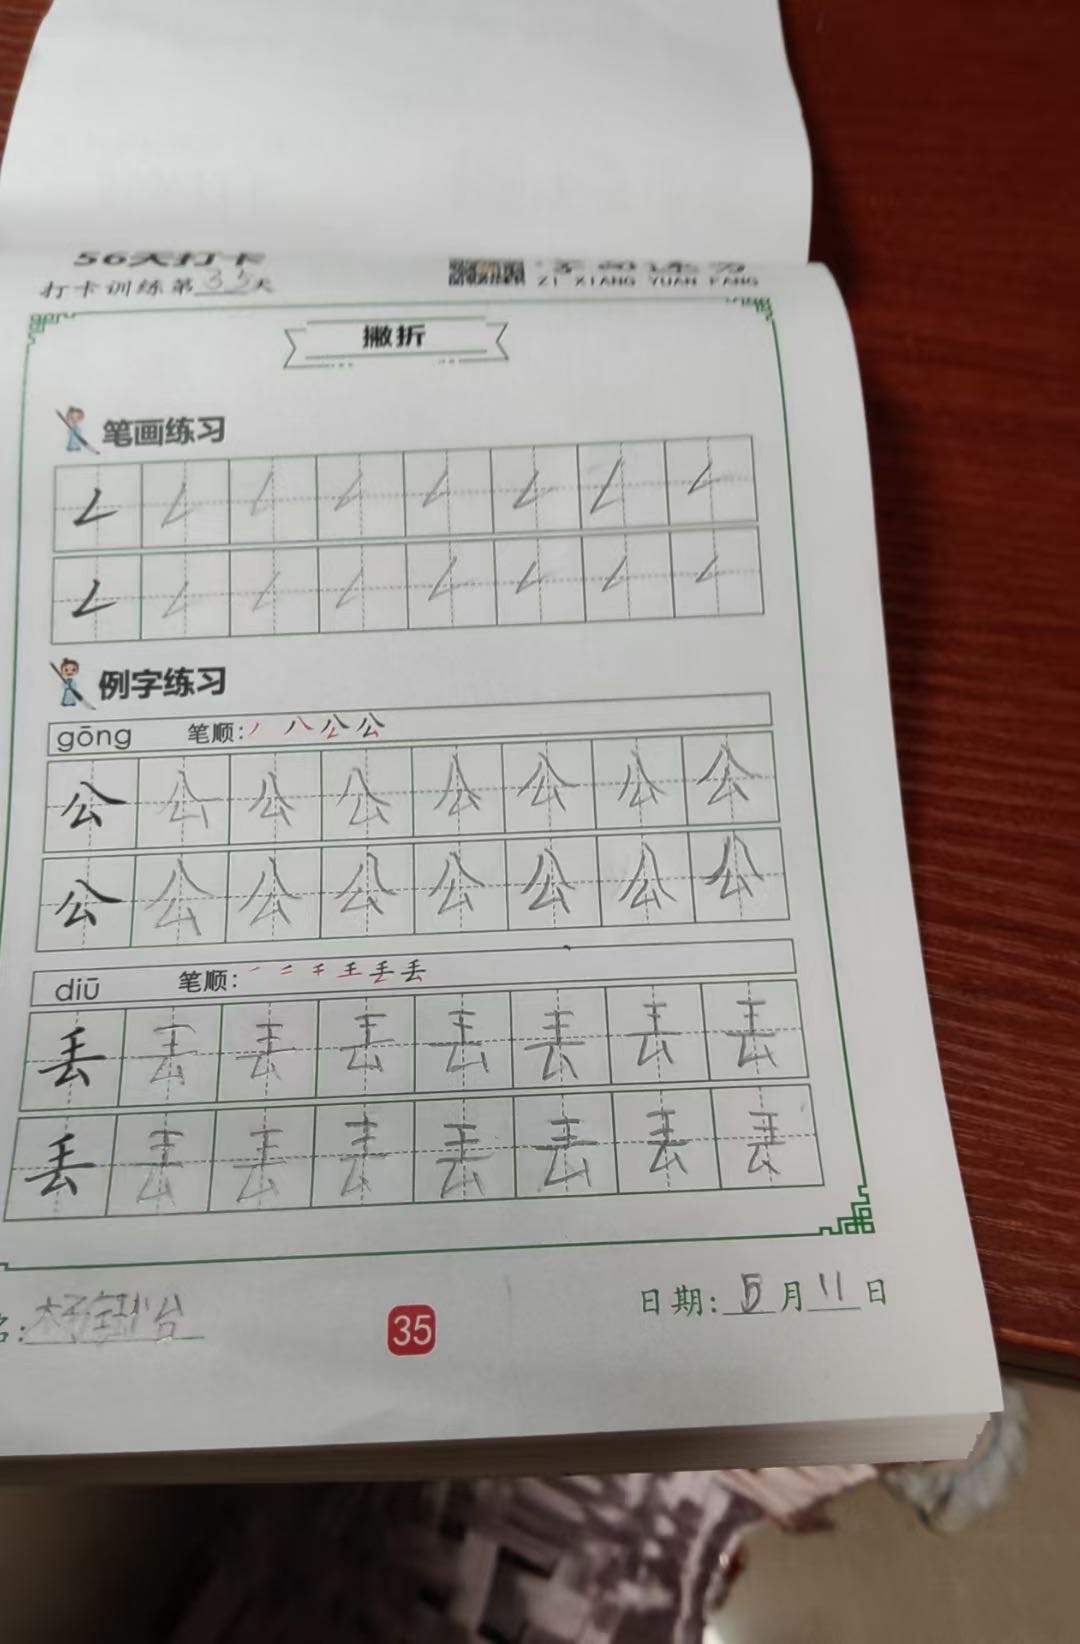 56天打卡
打卡训练第35天
ZI XIANG YUAN FANG
撇折
笔画练习
例字练习
gōng 笔顺:丿 八 公 公
公 公 公 公 公 公 公 公
公 公 公 公 公 公 公 公
diū 笔顺:一 二 千 王 丢 丢
丢 丢 丢 丢 丢 丢 丢 丢
丢 丢 丢 丢 丢 丢 丢 丢
名:
35
日期:5月11日